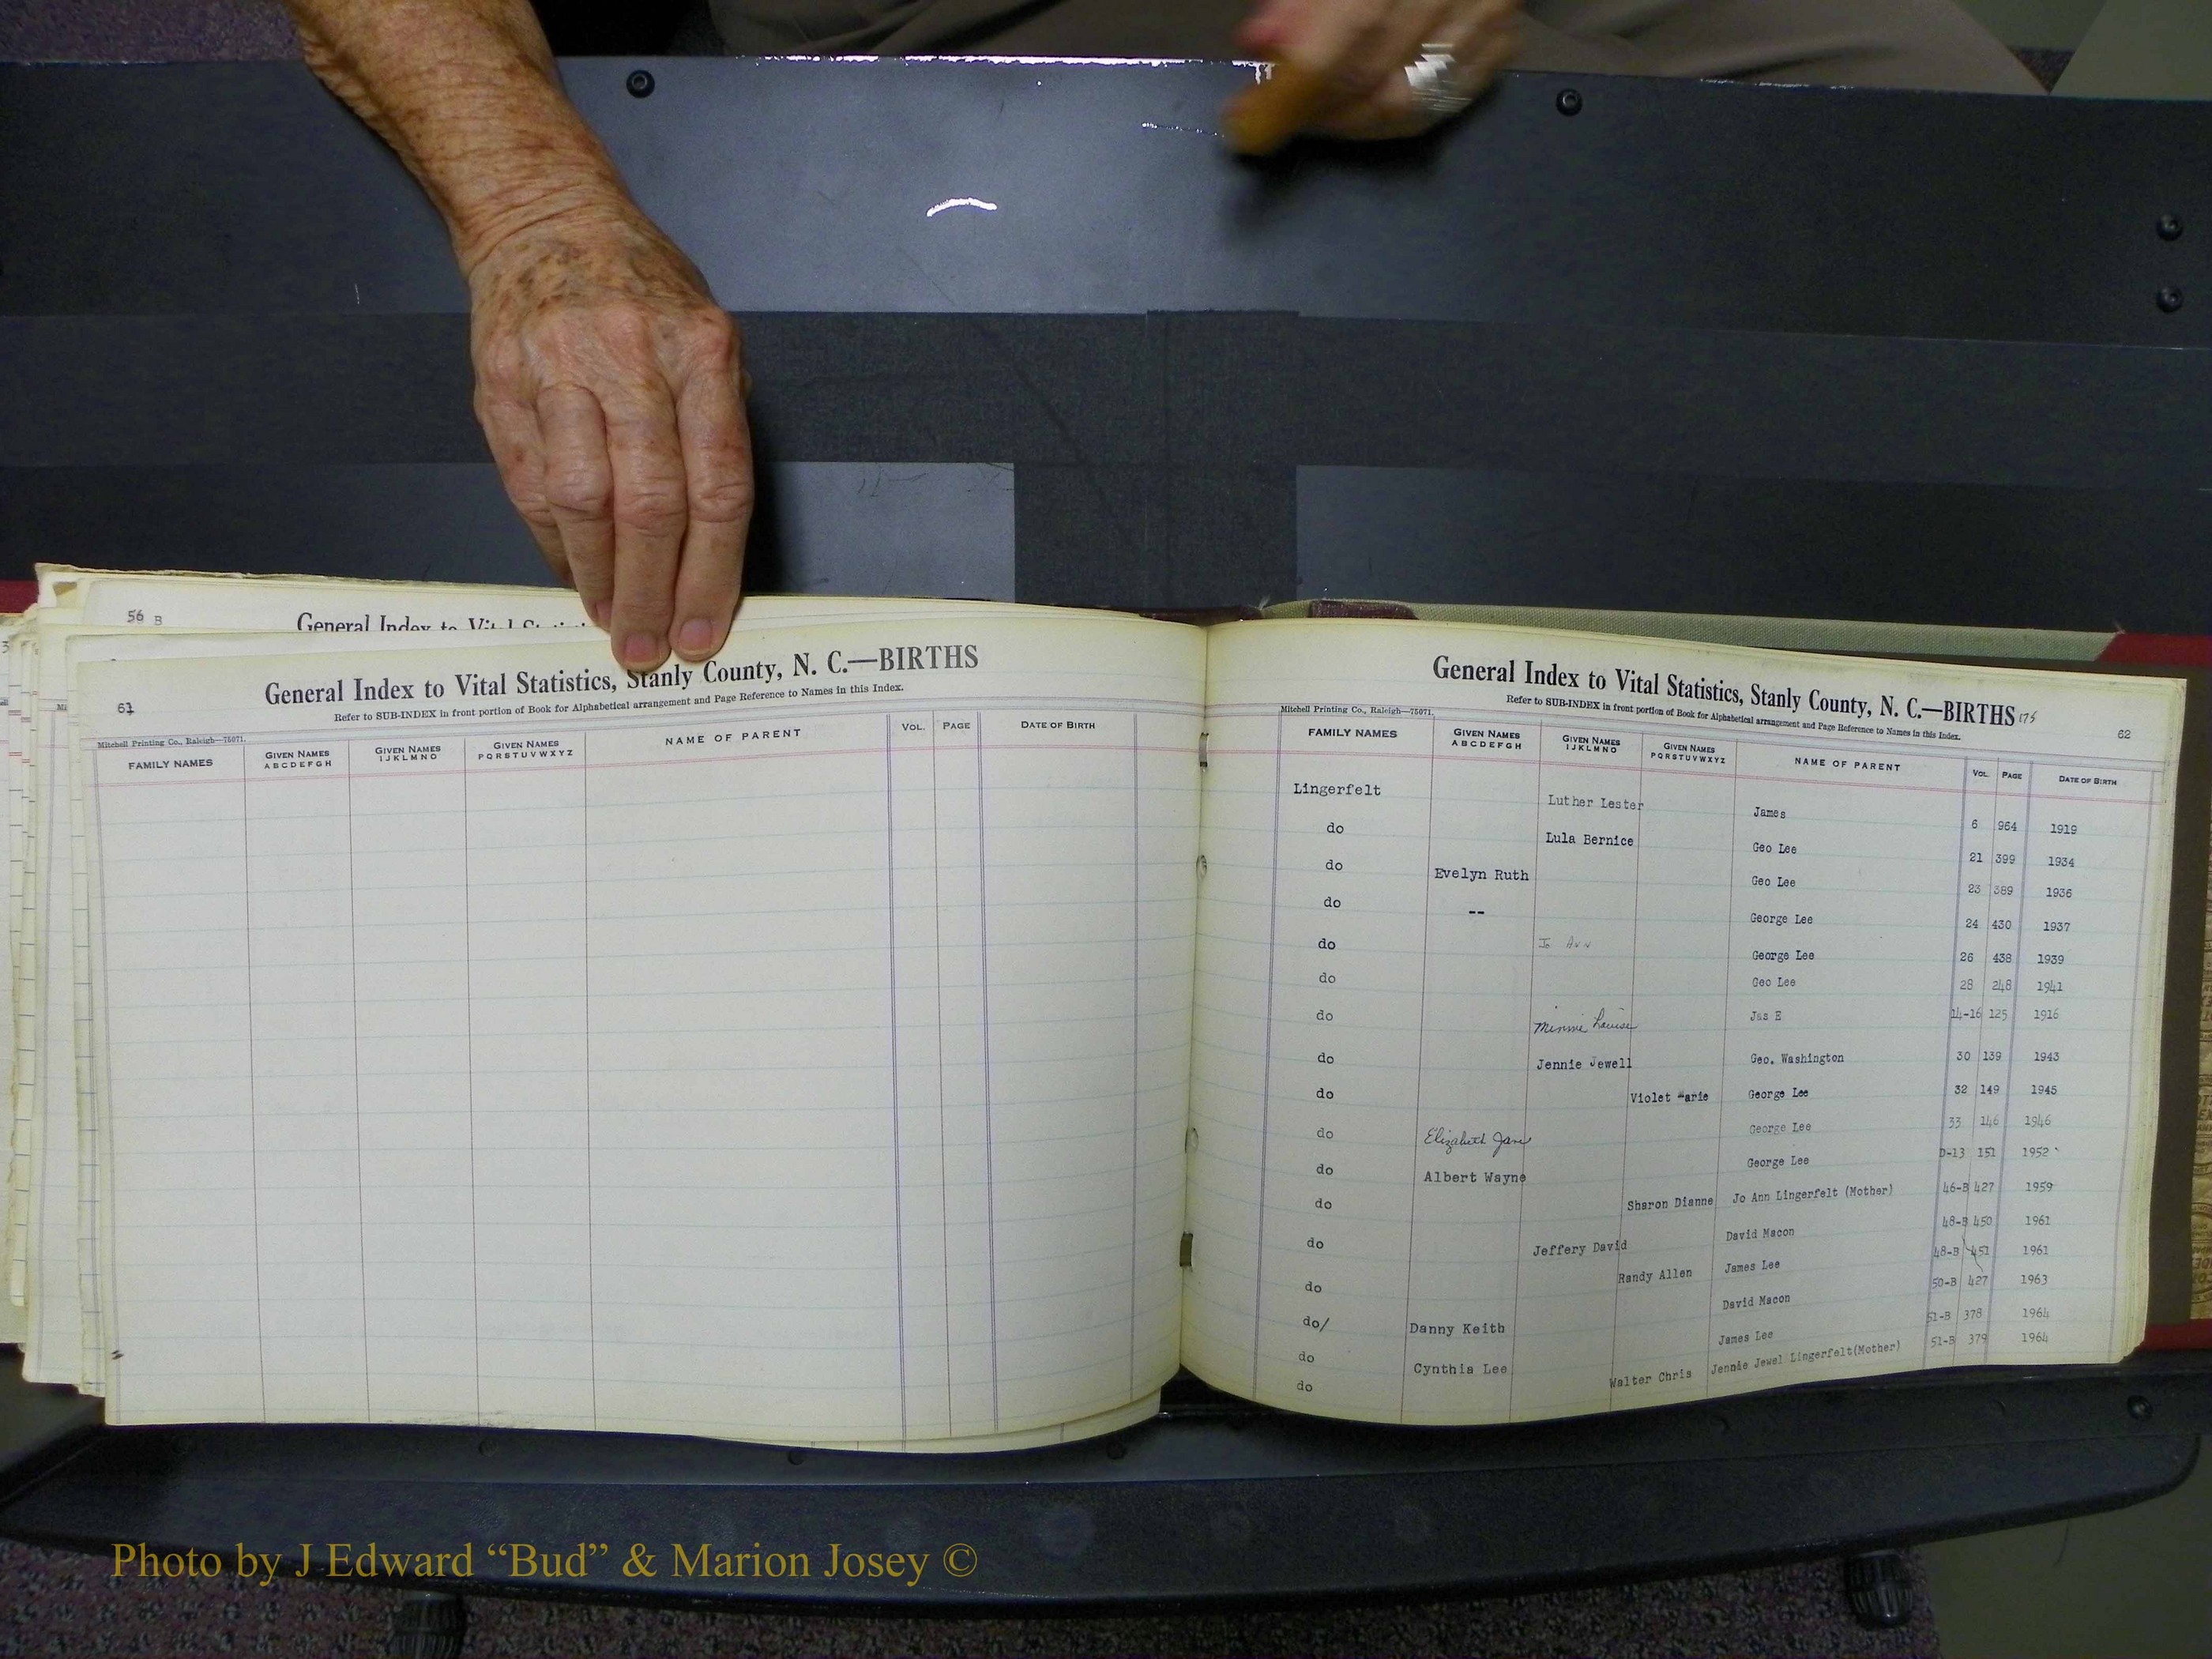 56 B
General Index to Vital Statistics
61
General Index to Vital Statistics, Stanly County, N. C.—BIRTHS
Refer to SUB-INDEX in front portion of Book for Alphabetical arrangement and Page Reference to Names in this Index.
Mitchell Printing Co., Raleigh—75071.
FAMILY NAMES GIVEN NAMES ABCDEFGH GIVEN NAMES IJKLMNO GIVEN NAMES PQRSTUVWXYZ NAME OF PARENT VOL. PAGE DATE OF BIRTH
General Index to Vital Statistics, Stanly County, N. C.—BIRTHS 175
Refer to SUB-INDEX in front portion of Book for Alphabetical arrangement and Page Reference to Names in this Index.
62
Mitchell Printing Co., Raleigh—75071.
FAMILY NAMES GIVEN NAMES ABCDEFGH GIVEN NAMES IJKLMNO GIVEN NAMES PQRSTUVWXYZ NAME OF PARENT VOL. PAGE DATE OF BIRTH
Lingerfelt Luther Lester James 6 964 1919
do Lula Bernice Geo Lee 21 399 1934
do Evelyn Ruth Geo Lee 23 389 1936
do -- George Lee 24 430 1937
do Jo Ann George Lee 26 438 1939
do Geo Lee 28 248 1941
do Minnie Louise Jas E 14-16 125 1916
do Jennie Jewell Geo. Washington 30 139 1943
do Violet Marie George Lee 32 149 1945
do Elizabeth Jane George Lee 33 146 1946
do Albert Wayne George Lee D-13 151 1952
do Sharon Dianne Jo Ann Lingerfelt (Mother) 46-B 427 1959
do Jeffery David David Macon 48-B 450 1961
do Randy Allen James Lee 48-B 451 1961
do/ Danny Keith David Macon 50-B 427 1963
do Cynthia Lee James Lee 51-B 378 1964
do Walter Chris Jennie Jewel Lingerfelt(Mother) 51-B 379 1964
Photo by J Edward “Bud” & Marion Josey ©